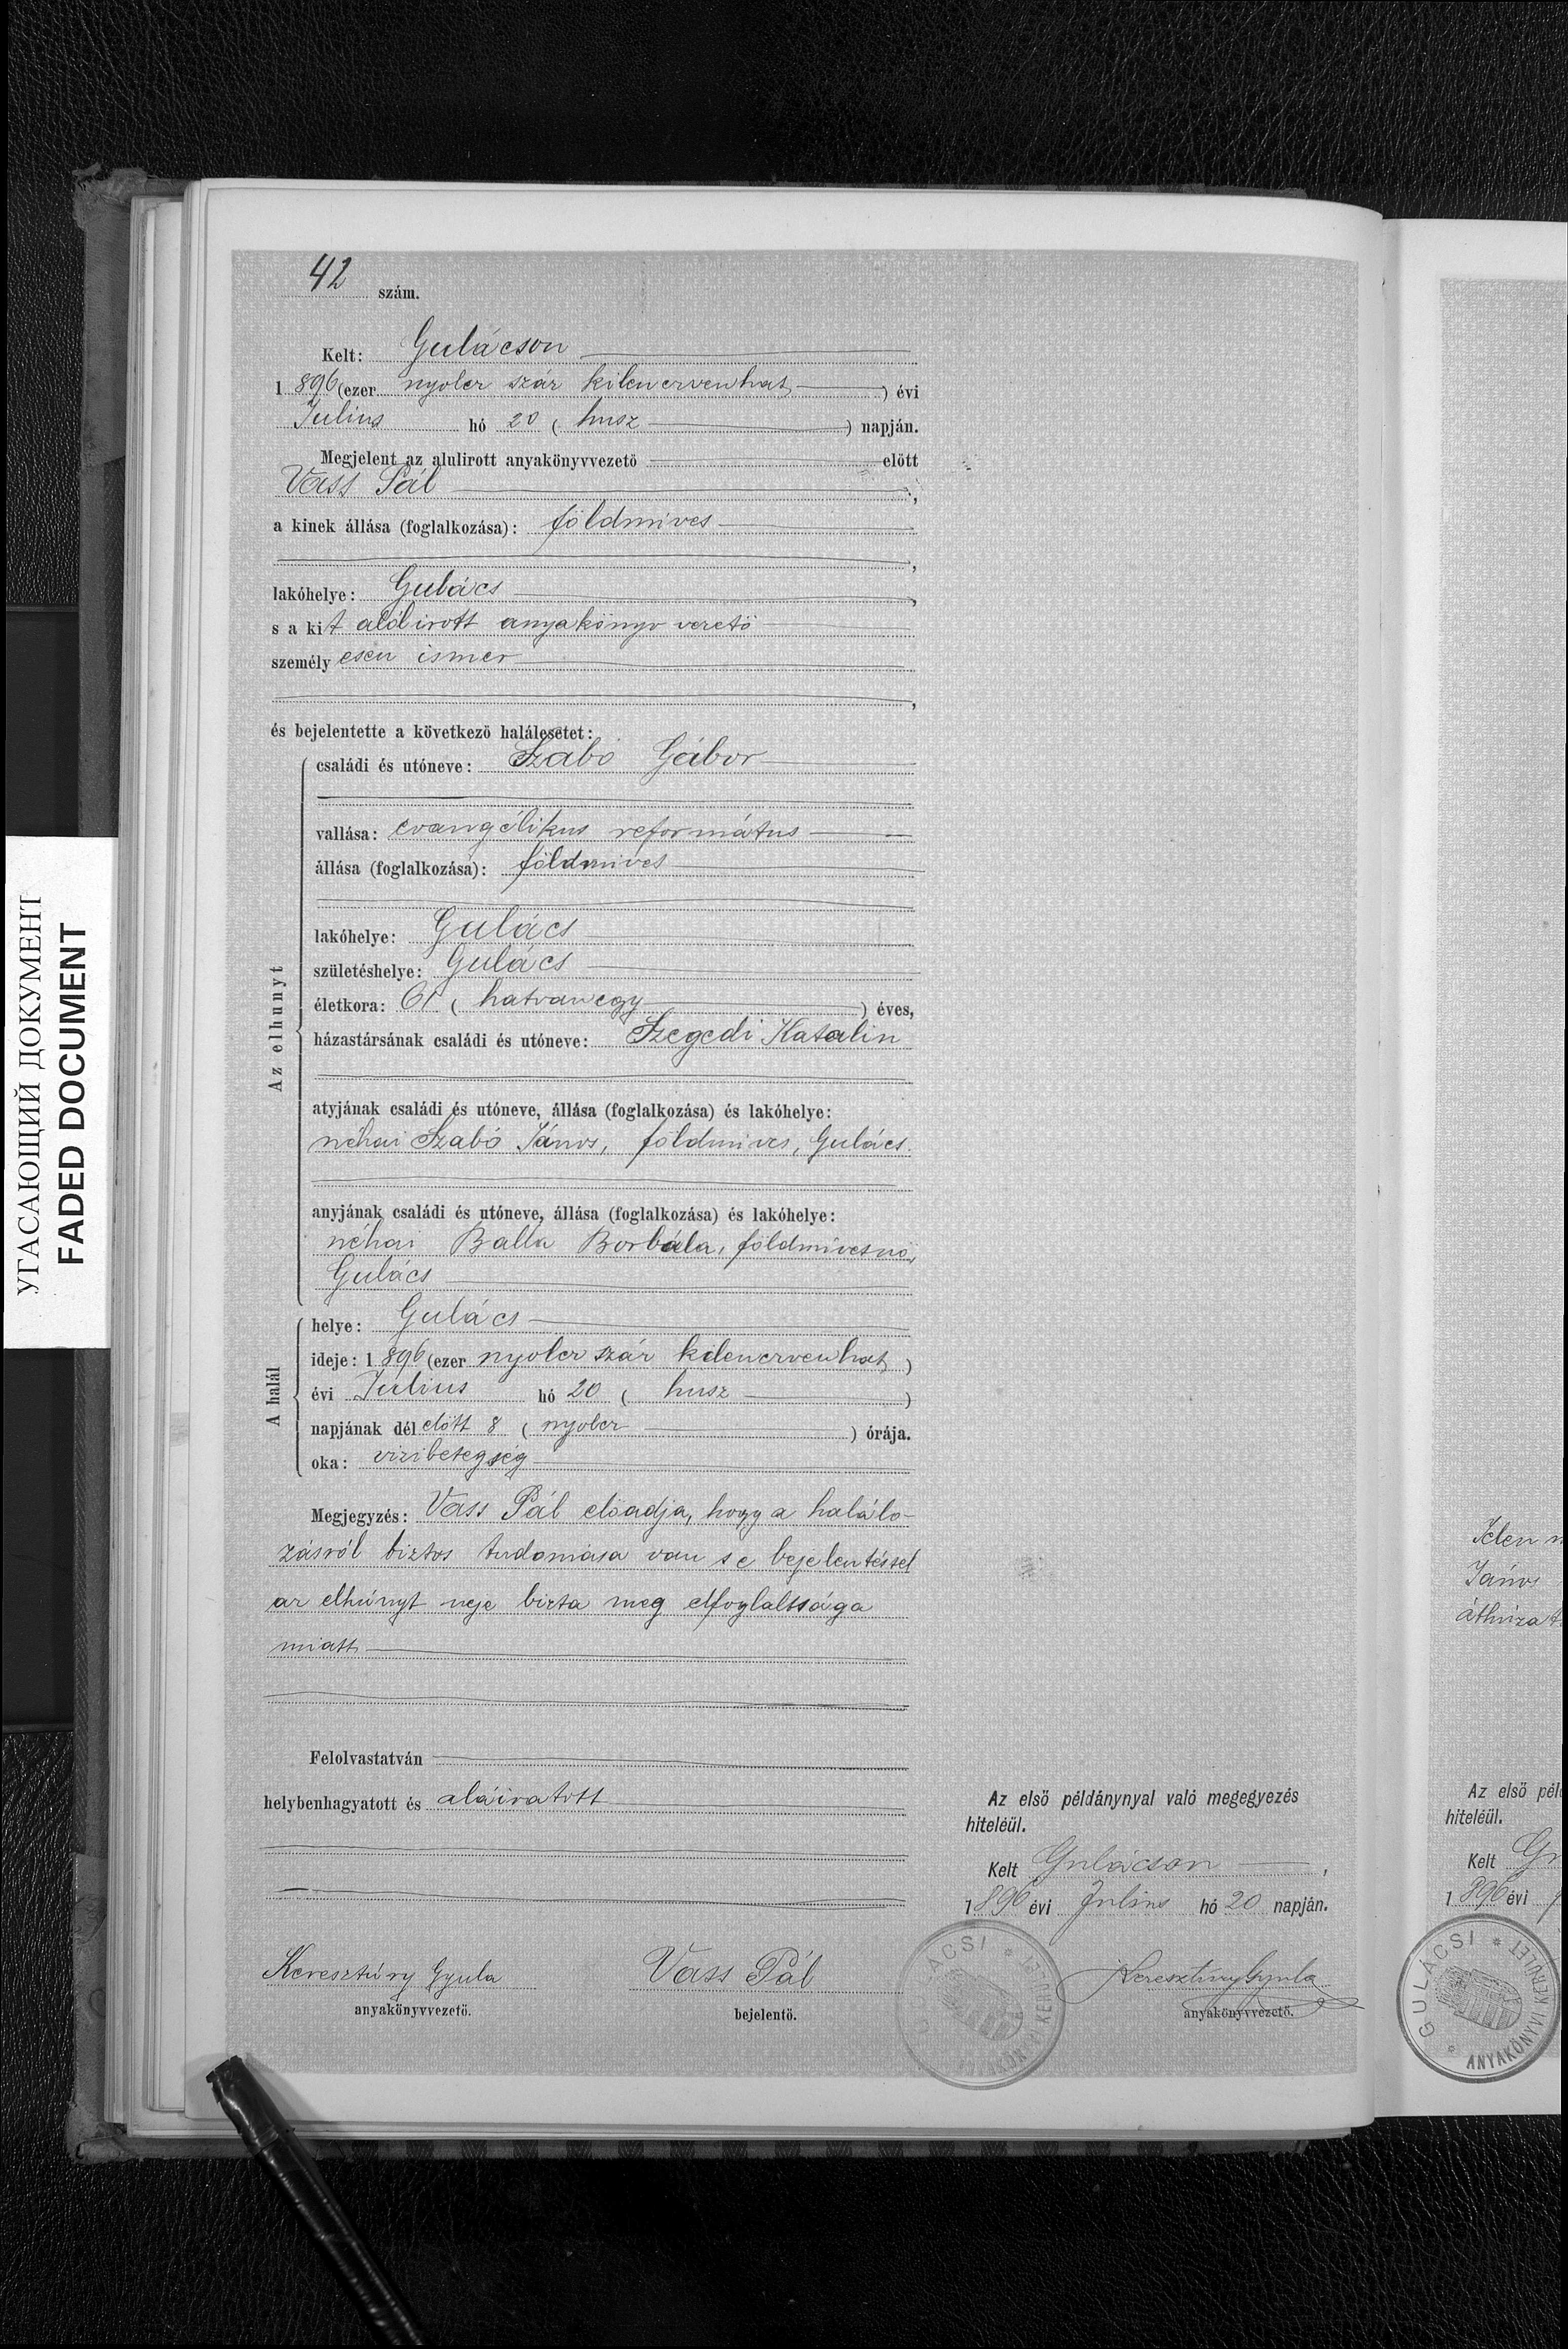 42 szám.
Kelt: Gulácson
1 896 (ezer nyolcz száz kilenczvenhat ) évi
Julius hó 20 ( husz ) napján.
Megjelent az alulirott anyakönyvvezető előtt
Vass Pál ,
a kinek állása (foglalkozása): földmíves
,
lakóhelye: Gulács ,
s a kit alólirott anyakönyvvezető
személyesen ismer
,
és bejelentette a következő halálesetet:
Az elhunyt
családi és utóneve: Szabó Gábor
vallása: evangélikus református
állása (foglalkozása): földmíves
lakóhelye: Gulács
születéshelye: Gulács
életkora: 61 ( hatvanegy ) éves,
házastársának családi és utóneve: Szegedi Katalin
atyjának családi és utóneve, állása (foglalkozása) és lakóhelye:
néhai Szabó János, földmíves, Gulács.
anyjának családi és utóneve, állása (foglalkozása) és lakóhelye:
néhai Balla Borbála, földmívesnő,
Gulács
A halál
helye: Gulács
ideje: 1 896 (ezer nyolcz száz kilenczvenhat )
évi Julius hó 20 ( husz )
napjának délelőtt 8 ( nyolcz ) órája.
oka: vizibetegség
Megjegyzés: Vass Pál előadja, hogy a halálo-
zásról biztos tudomása van s e bejelentéssel
az elhúnyt neje bizta meg elfoglaltsága
miatt
Felolvastatván
helybenhagyatott és aláiratott
Keresztúry Gyula
anyakönyvvezető.
Vass Pál
bejelentő.
Az első példánynyal való megegyezés
hiteléül.
Kelt Gulácson ,
1 896 évi Julius hó 20 napján.
Keresztúry Gyula
anyakönyvvezető.
GULÁCSI * ANYAKÖNYVI KERÜLET *
Jelen
János
Az első pél
hiteléül.
Kelt Gu
1 896 évi
GULÁCSI * ANYAKÖNYVI KERÜLET *
УГАСАЮЩИЙ ДОКУМЕНТ
FADED DOCUMENT